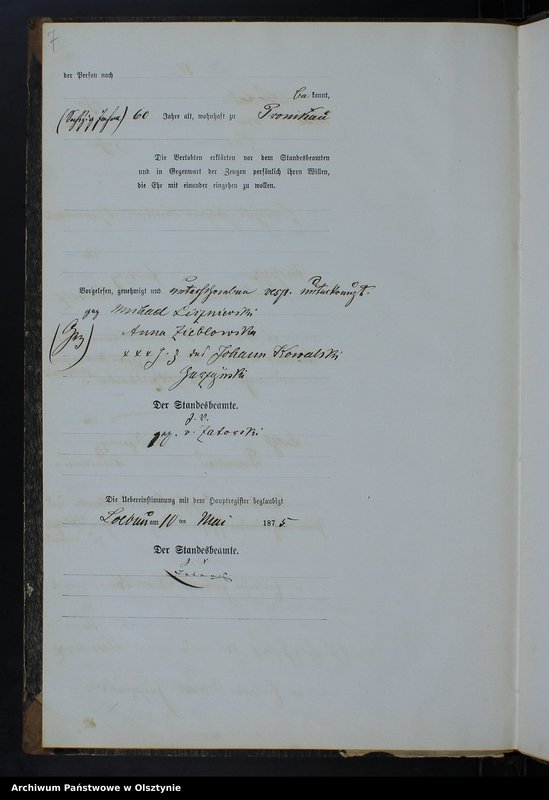 7
der Person nach
be kannt,
(Sechzig Jahre) 60 Jahre alt, wohnhaft zu Pronikau
Die Verlobten erklärten vor dem Standesbeamten
und in Gegenwart der Zeugen persönlich ihren Willen,
die Ehe mit einander eingehen zu wollen.
Vorgelesen, genehmigt und unterschrieben resp. unterkreuzt.
gez Michael Liszniewski
(Gez) Anna Zieblowska
xxx H. Z des Johann Kowalski
Der Standesbeamte.
J. V.
gez. v.
Die Uebereinstimmung mit dem Hauptregister beglaubigt
Loebau am 10 ten Mai 1875
Der Standesbeamte.
Archiwum Państwowe w Olsztynie